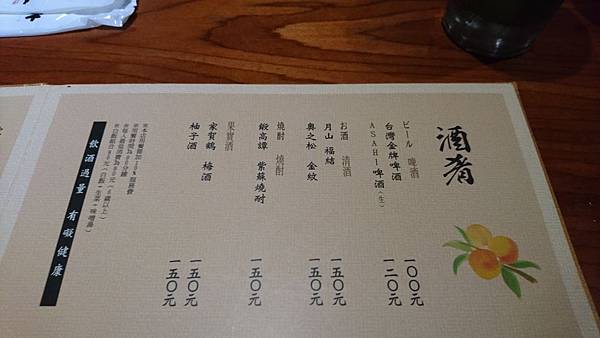 酒肴
ビール 啤酒
台灣金牌啤酒 一〇〇元
ASAHI啤酒(生) 一二〇元
お酒 清酒
月山 福結 一五〇元
奥之松 金紋 一五〇元
燒酎 燒酎
鍛高譚 紫蘇燒酎 一五〇元
果實酒
家賀鶴 梅酒 一五〇元
柚子酒 一五〇元
飲酒過量 有礙健康